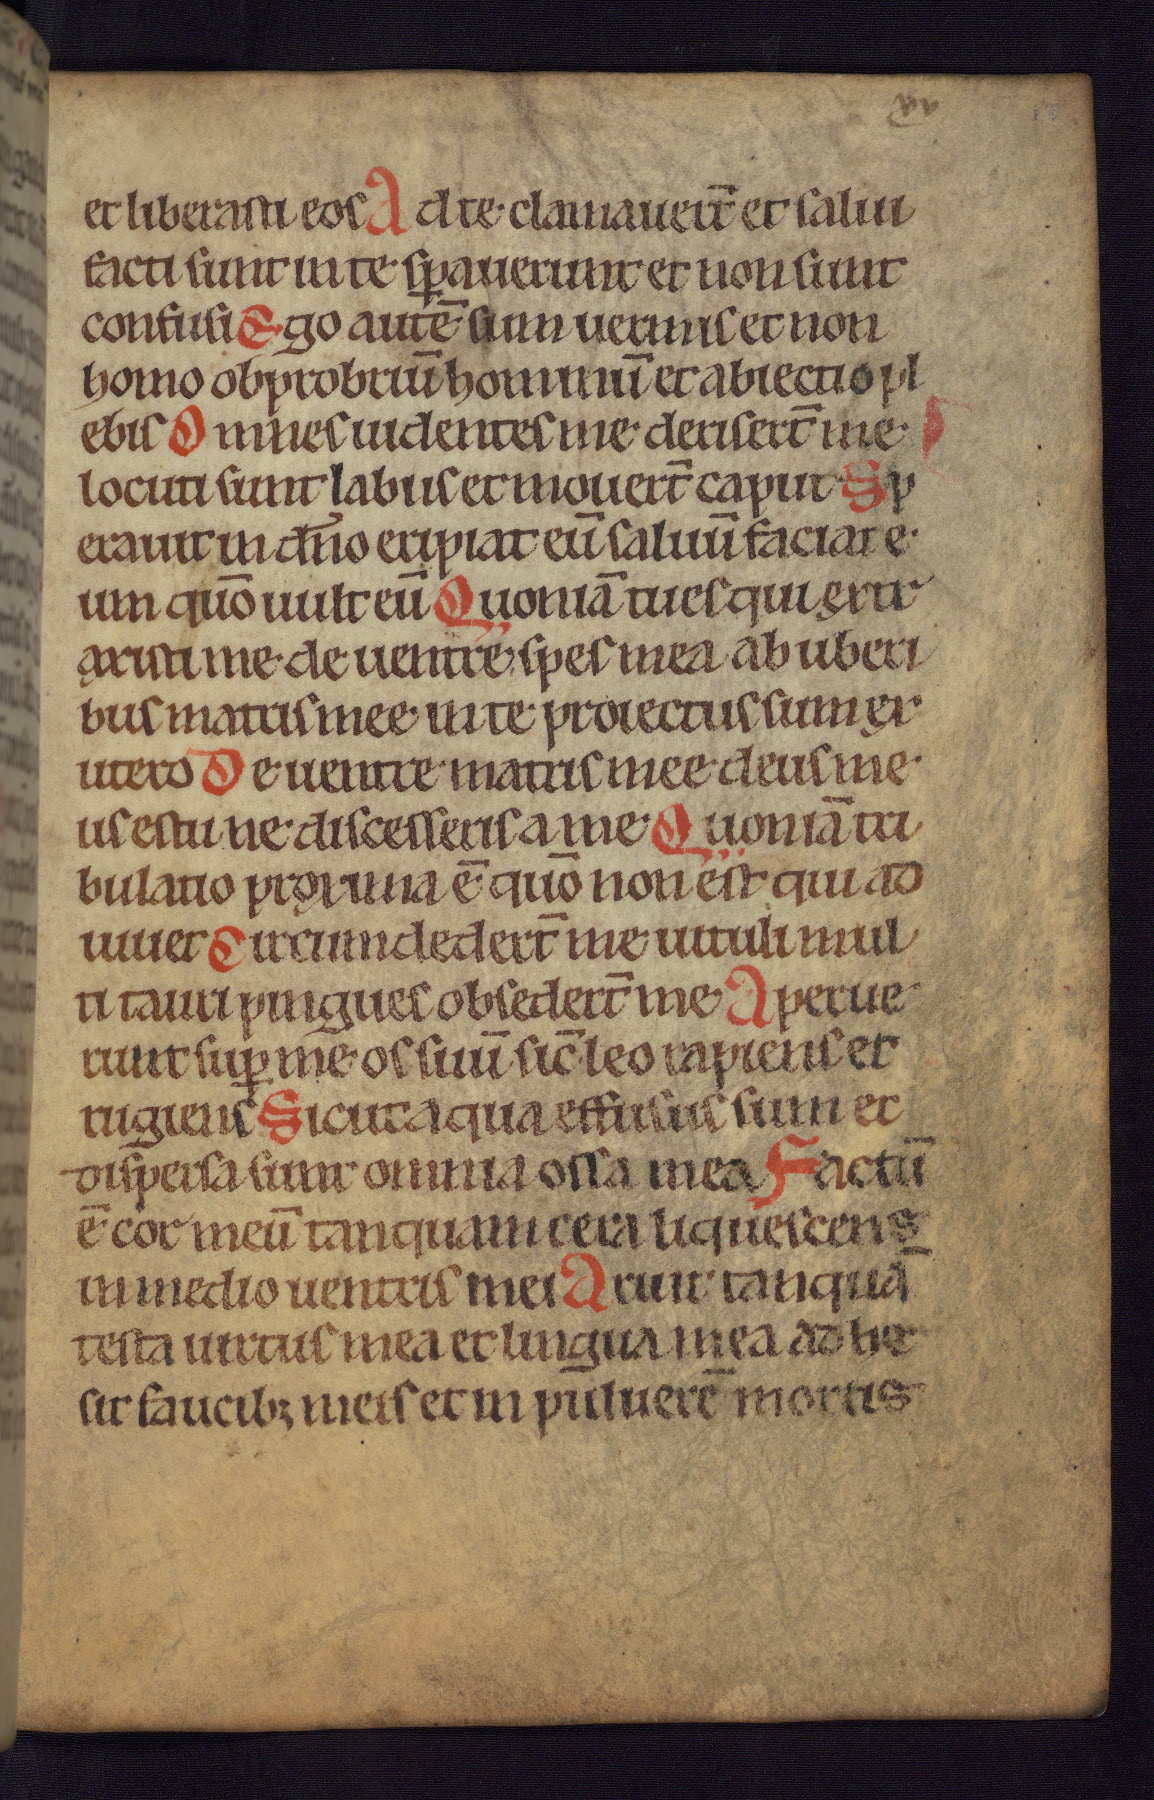 xv
et liberasti eos Ad te clamauer̄t et salui
facti sunt in te sꝑauerunt et non sunt
confusi Ego autē sum uermis et non
homo obprobriū hominū et abiectio pl
ebis Omnes uidentes me deriser̄t me
locuti sunt labiis et mouer̄t caput Sp
erauit in dn̄o eripiat eū saluū faciat e
um quō uult eū Quoniā tu es qui extr
axisti me de uentre spes mea ab uberi
bus matris mee in te proiectus sum ex
utero De uentre matris mee deus me
us es tu ne discesseris a me Quoniā tri
bulatio proxima ē quō non est qui ad
iuuet Circumdeder̄t me uituli mul
ti tauri pingues obseder̄t me Aperue
runt suꝑ me os suū sic̄ leo rapiens et
rugiens Sicut aqua effusus sum et
dispersa sunt omnia ossa mea Factū
ē cor meū tanquam cera liquescens
in medio uentris mei Aruit tanquā
testa uirtus mea et lingua mea adhe
sit faucibꝫ meis et in puluerē mortis